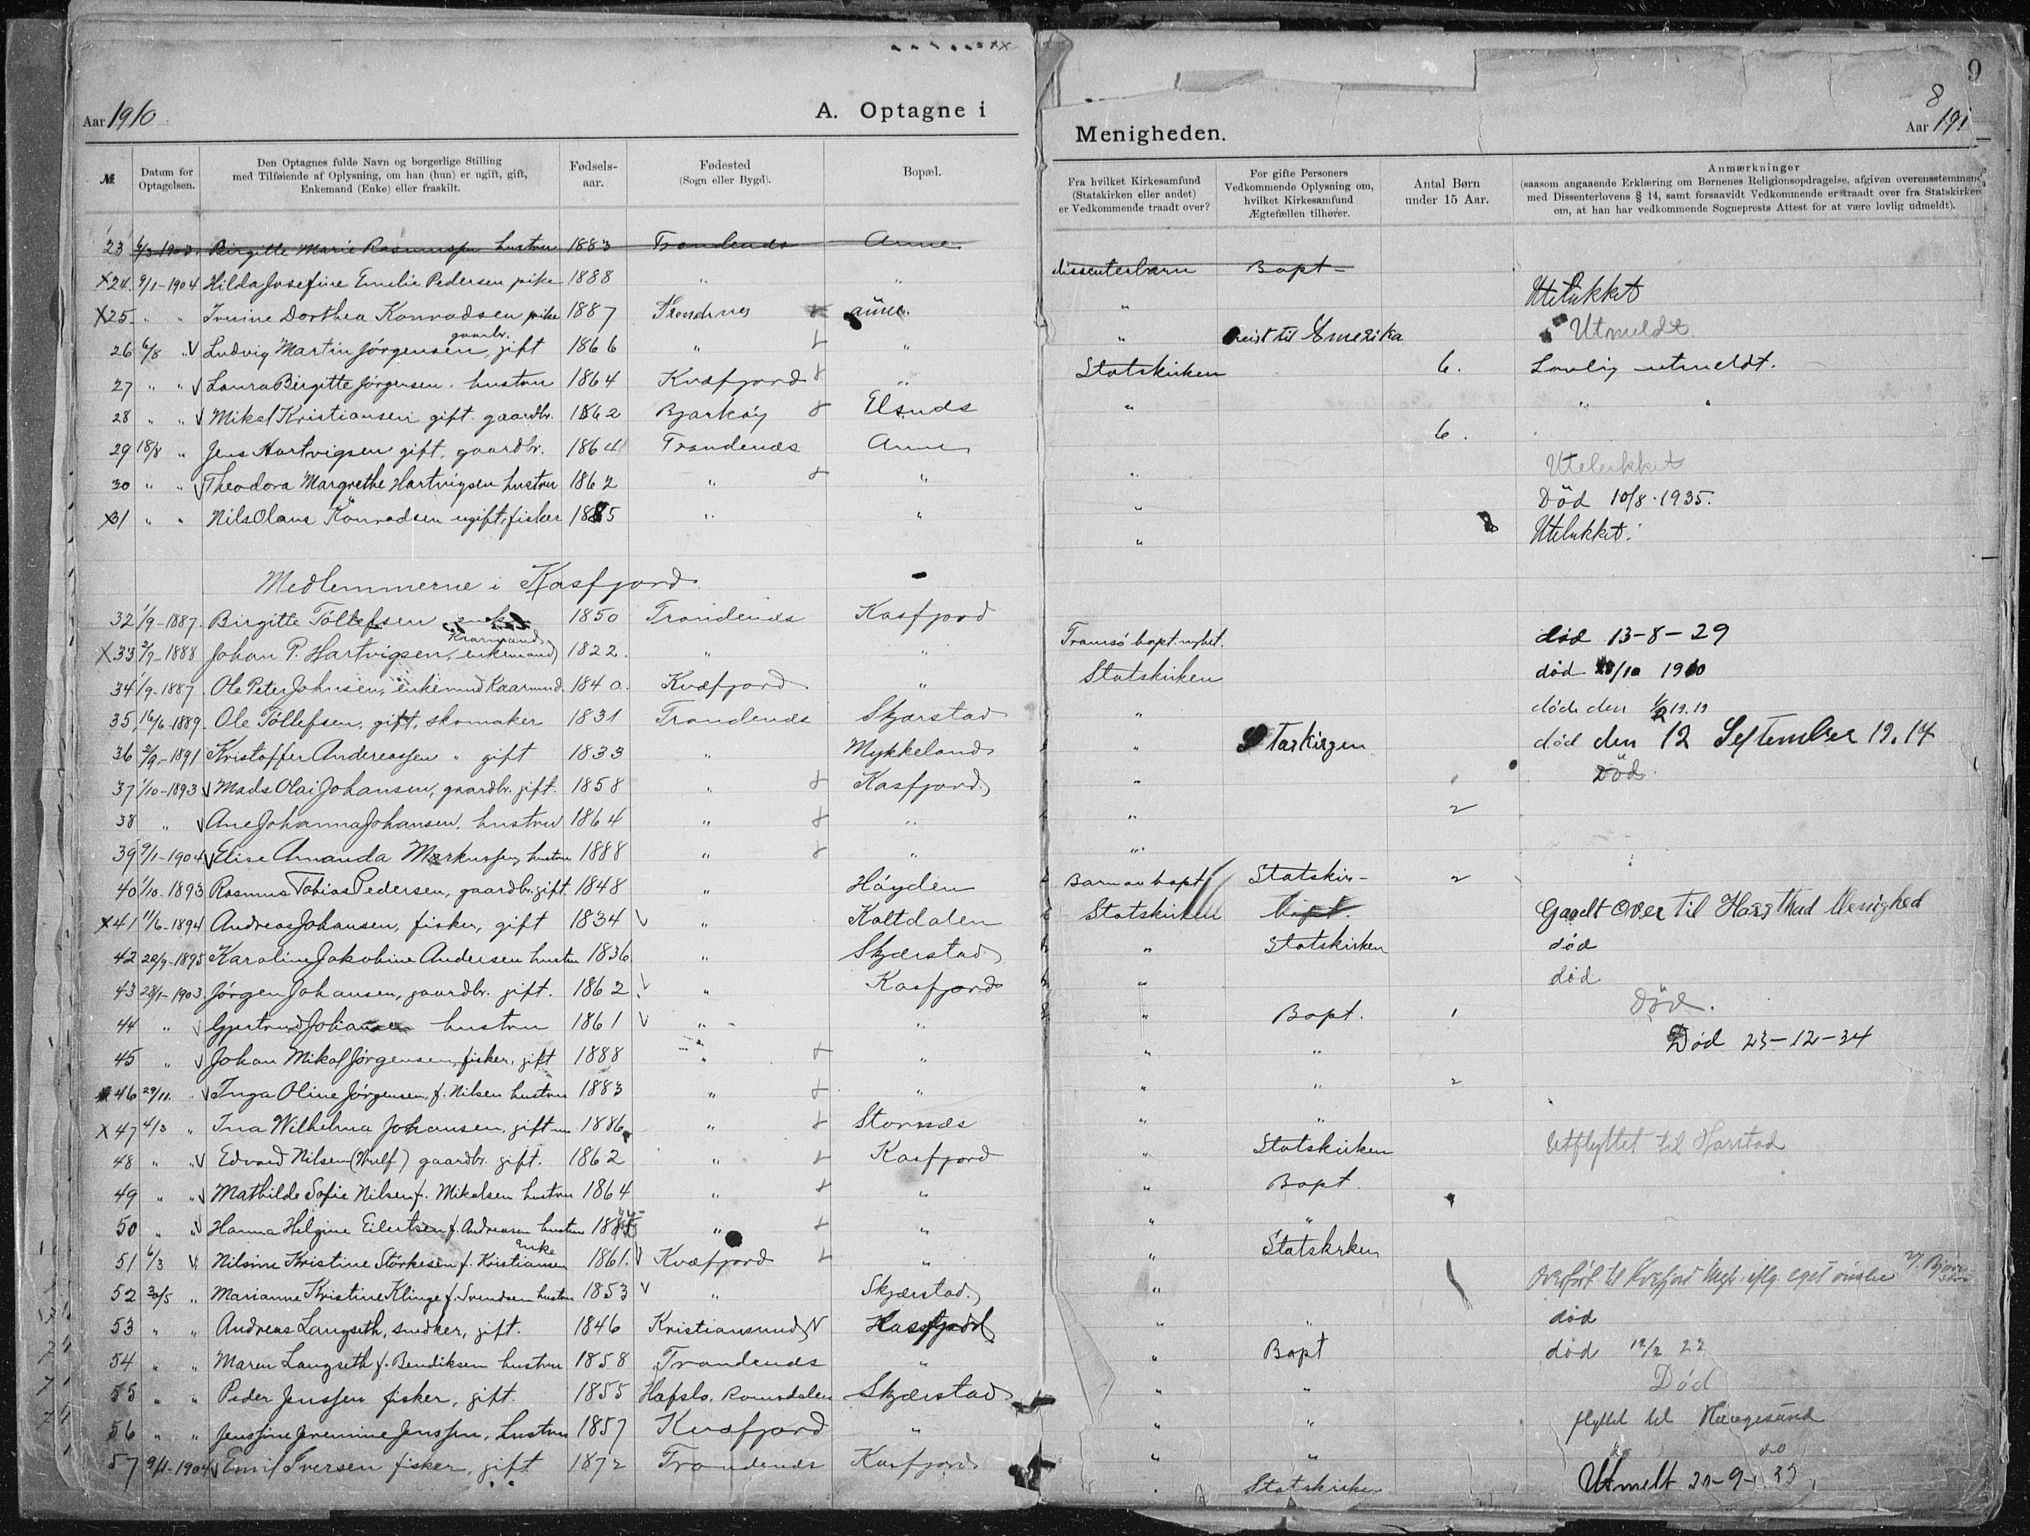 Aar 1910 A. Optagne i
№ Datum for Optagelsen. Den Optagnes fulde Navn og borgerlige Stilling med Tilføiende af Oplysning, om han (hun) er ugift, gift, Enkemand (Enke) eller fraskilt. Fødsels-aar. Fødested (Sogn eller Bygd). Bopæl.
23 6/3 1903. Birgitte Marie Rasmussen hustru 1883 Trondenæs Aune
X24 9/1-1904 Hilda Josefine Emilie Pedersen pike 1888 " "
X25 " " Irene Dorthea Konradsen pike 1887 Trondnes aune.
gaardbr.
26 6/8 " V Ludvig Martin Jørgensen, gift 1866 " "
27 " " V Laura Birgitte Jørgensen. hustru 1864 Kvæfjord 8 "
28 " " V Mikal Kristiansen gift. gaardbr. 1862 Bjarkøy 8 Elsnæs
29 18/8 " Jens Hartvigsen gift, gaardbr. 1864 Trondenæs Aune
30 " " V Theodora Margrethe Hartvigsen hustru 1862 " 8 "
X31 " " Nils Olaus Konradsen ugift, fisker 1885 " "
Medlemmerne i Kasfjord
32 1/9-1887. Birgitte Tøllefsen enke 1850 Trondenæs Kasfjord
Kaarmand
X33 2/9-1888 Johan P. Hartvigsen, enkemand 1822. " "
34 1/9-1887. Ole Peter Johnsen, enkemand Kaarmand. 1840. Kvæfjord "
35 16/6-1889. Ole Tøllefsen, gift, skomaker 1831 Trondenæs Skjærstad
36 2/9-1891 Kristoffer Andreassen " gift 1833 " Mykkeland
37 1/10-1893 V Mads Olai Johansen, gaardbr. gift. 1858 " 8 Kasfjord
38 " V Ane Johanna Johansen. hustru 1864 " 8 "
39 9/1-1904 V Elise Amanda Markussen hustru 1888 " 8 "
40 1/10.1893 Rasmus Tobias Pedersen, gaardbr. gift. 1848 " Høyden
X41 11/6-1894 Andreas Johansen, fisker, gift 1834 V " Kaltdalen
42 20/9-1895 Karoline Jakobine Andersen hustru 1836 " Skjærstad
43 28/1-1903. Jørgen Johansen, gaardbr. gift. 1862 V " Kasfjord
44 " V Gjertrud Johansen hustru 1861 V " "
45 " V Johan Mikal Jørgensen, fisker, gift 1888 " 8 "
46 29/11. " V Inga Oline Jørgensen, f. Nilsen hustru 1883 " 8 "
X47 4/3 " Ina Wilhelma Johansen, gift 1886 " 8 Stornæs
48 " " V Edvard Nilsen (Wulf) gaardbr. gift. 1862 " 8 Kasfjord
49 " " V Mathilde Sofie Nilsen f. Mikalsen hustru 1864 " 8 "
50 " " V Hanna Helgine Eilertsen f. Andreasen hustru " 8 "
Enke
51 6/3 V Nilsine Kristine Størkesen f. Kristiansen 1861. V Kvæfjord 8 "
52 30/5 " Marianne Kristine Klinge f. Svendsen hustru 1853 V " Skjærstad.
53 " " Andreas Langseth, snedker, gift. 1846 Kristiansund N Kasfjord
54 " " Maren Langseth f. Bendiksen hustru 1858 Trondenæs "
55 " " Peder Jenssen fisker, gift. 1855 Hafslo, Romsdalen Skjærstad
56 " " Jenssine Jenssen, hustru 1857 Kvæfjord "
57 9/1-1904 V Emil Iversen fisker, gift 1872 Trondenæs Kasfjord
9
8
Menigheden. Aar 191
Fra hvilket Kirkesamfund (Statskirken eller andet) er Vedkommende traadt over? For gifte Personers Vedkommende Oplysning om, hvilket Kirkesamfund Ægtefællen tilhører. Antal Børn under 15 Aar. Anmærkninger (saasom angaaende Erklæring om Børnenes Religionsopdragelse, afgiven overensstemmende med Dissenterlovens § 14, samt forsaavidt Vedkommende er traadt over fra Statskirken om, at han har vedkommende Sogneprests Attest for at være lovlig udmeldt).
dissenterbarn Bapt-
" Utelukket
" reist til Amerika Utmeldt
Statskirken 6. Lovlig utmeldt.
" " "
6.
" Utelukket
" Død 10/8.1935.
" Utelukket.
Tromsø bapt. nyhet. død 13-8-29
Statskirken død /10 1910
" døde den 1/2 19.19
" Statskirken død den 12 September 19.14
" Død.
" 2
"
Barn av bapt. Statskir- 2
Statskirken Bapt. Gaaet over til Harsthad Menighed
" Statskirken død
" død
" Bapt. 1 Død.
" " Død 23-12-34
" " 2
" "
" Statskirken Utflyttet til Harstad
" Bapt.
" "
" Statskirken
" Overført til Kvæfjord Mgh. eget ønske
" " død
" Bapt død 12/2 22
" " Død
" " flyttet til Haugesund
" " do do
" Statskirken Utmelt 20-9-33